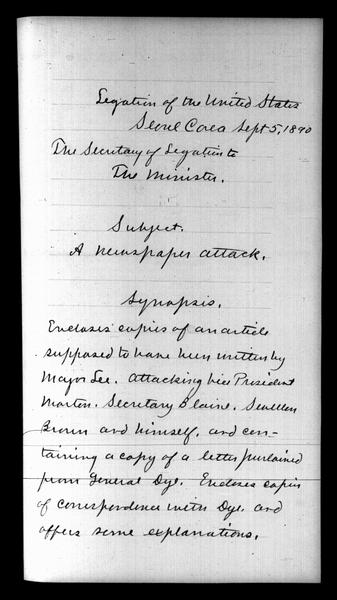 Legation of the United States
Seoul Corea Sept 5, 1890
The Secretary of Legation to
The Minister.
Subject.
A newspaper attack.
Synopsis.
Encloses copies of an article
supposed to have been written by
Major Lee. attacking Vice President
Morton. Secretary Blaine.
Brown and himself. and con-
taining a copy of a letter purloined
from General Dye. Encloses copies
of correspondence with Dye. and
offers some explanations.